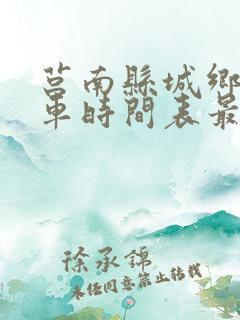 莒南縣城鄉
車時間表最
徐承錦
未经同意禁止转载